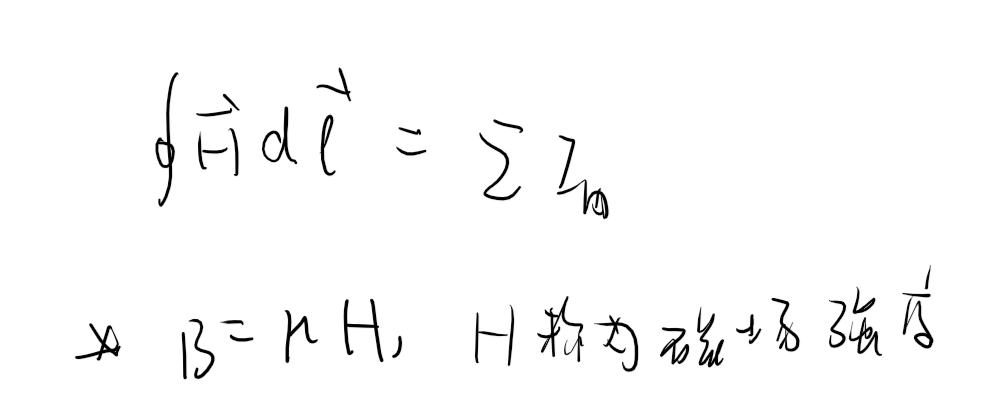 ∮H⃗ dl⃗ = Σ I内
※ B = μH, H称为磁场强度